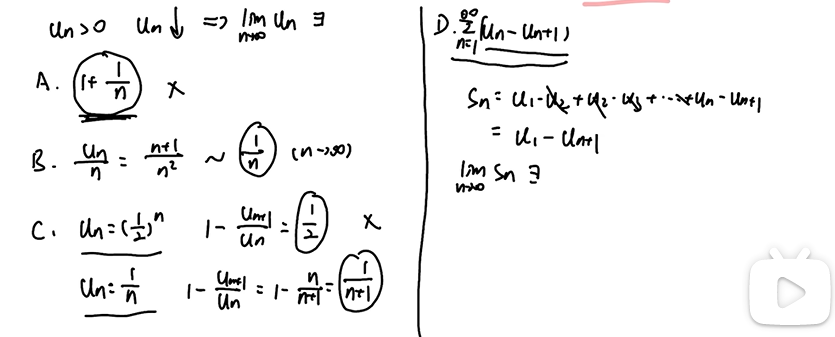 uₙ>0 uₙ↓ ⇒ lim_{n→∞} uₙ ∃
A. 1+ 1/n ×
B. uₙ/n = (n+1)/n² ~ 1/n (n→∞)
C. uₙ=(1/2)ⁿ 1 - uₙ₊₁/uₙ = 1/2 ×
uₙ = 1/n 1 - uₙ₊₁/uₙ = 1 - n/(n+1) = 1/(n+1)
D. ∑_{n=1}^{∞} (uₙ - uₙ₊₁)
Sₙ = u₁ - u₂ + u₂ - u₃ + ⋯ + uₙ - uₙ₊₁
= u₁ - uₙ₊₁
lim_{n→∞} Sₙ ∃